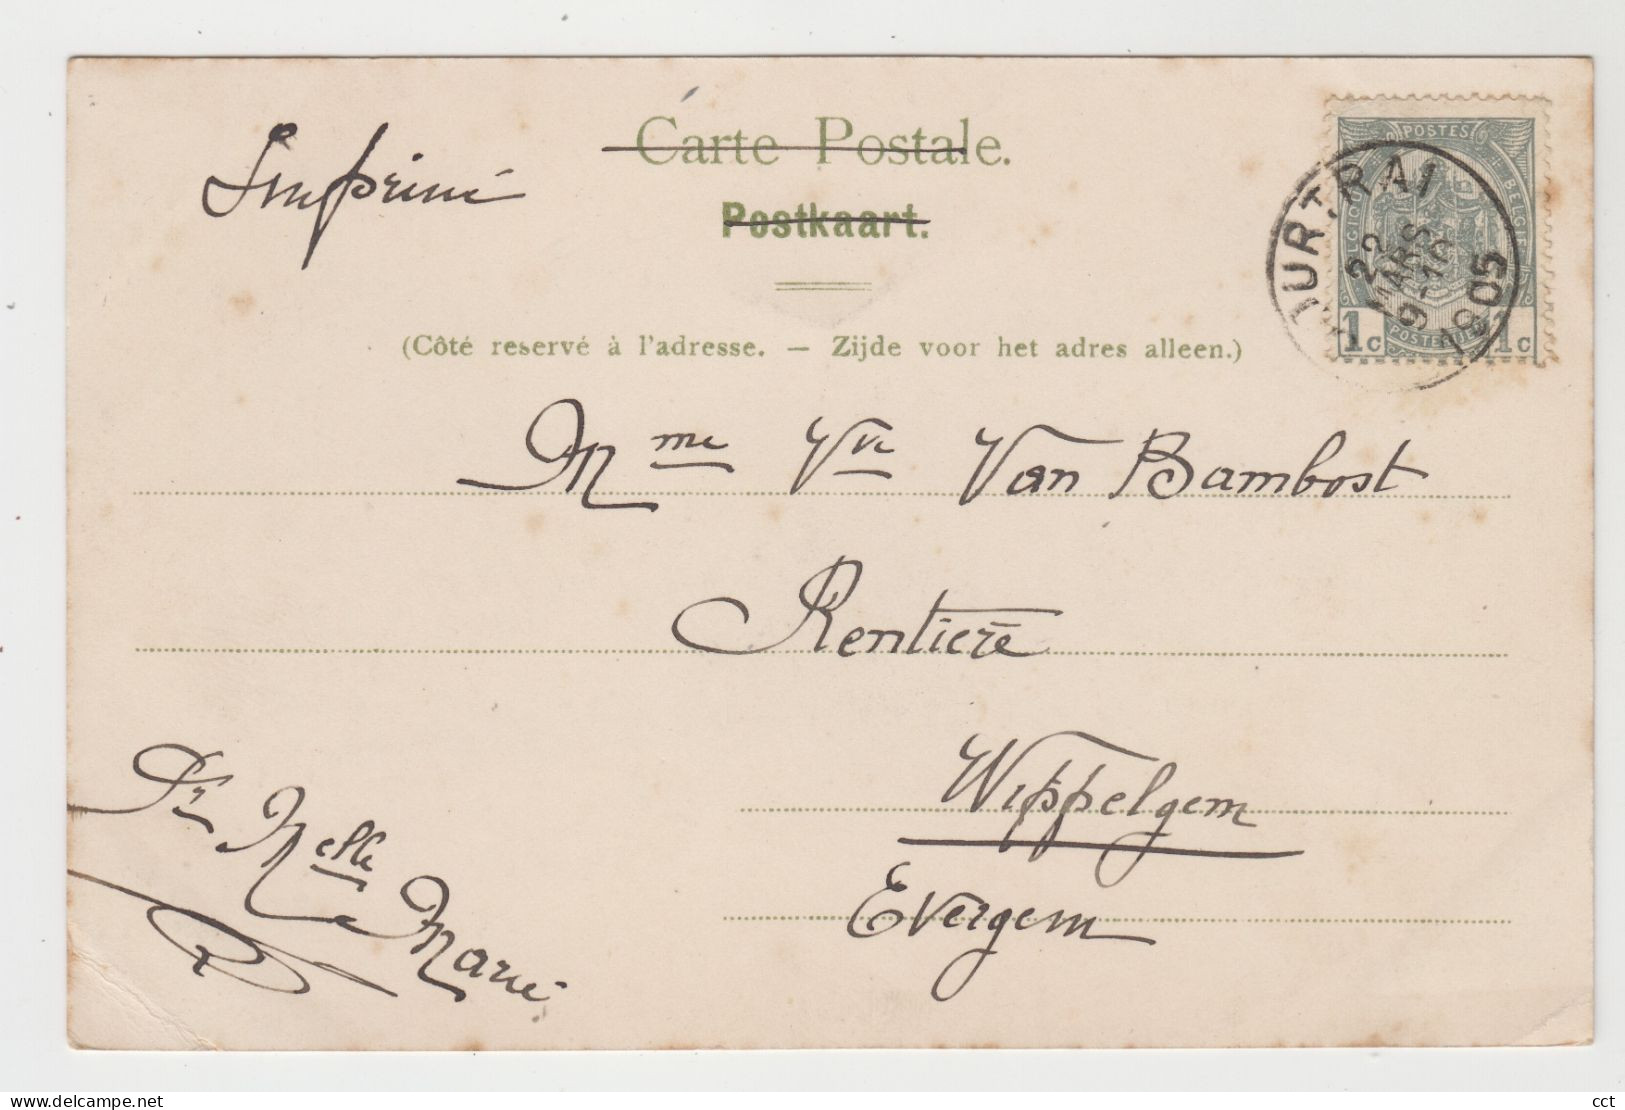 Imprimé
Carte Postale.
Postkaart.
(Côté reservé à l'adresse. — Zijde voor het adres alleen.)
POSTES
1c 1c
22
MARS
9-10
1905
Mme Vve Van Bambost
Rentière
Wippelgem
Evergem
Pr Melle Marie
delcampe.net
cct